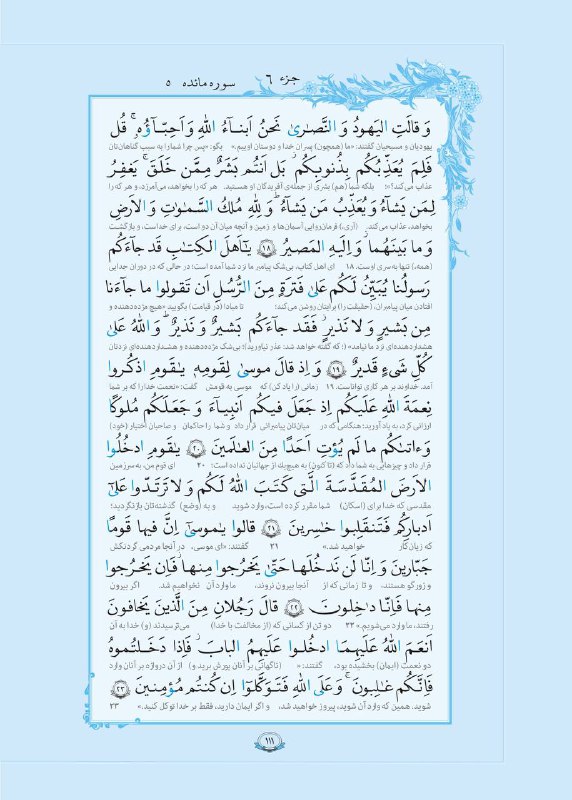 جزء ۶
سوره مائده ۵
وَ قالَتِ الیَهودُ وَ النَّصـٰریٰ نَحنُ اَبنـٰٓاءُ اللهِ وَ اَحِبّـٰٓاؤُهٗ ۚ قُل
یهودیان و مسیحیان گفتند: «ما (همچون) پسران خدا و دوستان اوییم.» بگو: «پس چرا شما را به سبب گناهان‌تان
فَلِمَ یُعَذِّبُکُم بِذُنوبِکُم ۖ بَل اَنتُم بَشَرٌ مِمَّن خَلَقَ ۚ یَغفِرُ
عذاب می‌کند؟»؛ بلکه شما (هم) بشری از جمله‌ی آفریدگان او هستید. هر که را بخواهد، می‌آمرزد، و هر که را
لِمَن یَشاءُ وَ یُعَذِّبُ مَن یَشاءُ ۚ وَ لِلّٰهِ مُلکُ السَّمـٰوٰتِ وَ الاَرضِ
بخواهد، عذاب می‌کند. (آری،) فرمان‌روایی آسمان‌ها و زمین و آنچه میان آن دو است، برای خداست، و بازگشت
وَ ما بَینَهُما ۖ وَ اِلَیهِ المَصیرُ ﴿۱۸﴾ یـٰٓاَهلَ الکِتـٰبِ قَد جاءَکُم
(همه)، تنها به سوی اوست. ۱۸ ای اهل کتاب، بی‌شک پیامبر ما نزد شما آمده است؛ در حالی که در دوران جدایی
رَسولُنا یُبَیِّنُ لَکُم عَلیٰ فَترَةٍ مِنَ الرُّسُلِ اَن تَقولوا ما جاءَنا
افتادن میان پیامبران، (حقیقت را) برایتان روشن می‌کند؛ تا مبادا (در قیامت) بگویید «هیچ مژده‌دهنده و
مِن بَشیرٍ وَ لا نَذیرٍ ۖ فَقَد جاءَکُم بَشیرٌ وَ نَذیرٌ ۗ وَ اللهُ عَلیٰ
هشداردهنده‌ای نزد ما نیامد.» (؛ که گفته خواهد شد: عذر نیاورید؛) بی‌شک مژده‌دهنده و هشداردهنده‌ای نزدتان
کُلِّ شَیءٍ قَدیرٌ ﴿۱۹﴾ وَ اِذ قالَ موسیٰ لِقَومِهٖ یـٰقَومِ اذکُروا
آمد. خداوند بر هر کاری تواناست. ۱۹ زمانی (را یاد کن) که موسی به قومش گفت: «نعمت خدا را که بر شما
نِعمَةَ اللهِ عَلَیکُم اِذ جَعَلَ فیکُم اَنبِیاءَ وَ جَعَلَکُم مُلوکًا
ارزانی کرد، به یاد آورید؛ هنگامی که در میان‌تان پیامبرانی قرار داد و شما را حاکمان و صاحبان اختیار (خود)
وَ ءاتـٰکُم ما لَم یُؤتِ اَحَدًا مِنَ العـٰلَمینَ ﴿۲۰﴾ یـٰقَومِ ادخُلُوا
قرار داد و چیزهایی به شما داد که (تا کنون) به هیچ‌یک از جهانیان نداده است؛ ۲۰ ای قوم من، به سرزمین
الاَرضَ المُقَدَّسَةَ الَّتی کَتَبَ اللهُ لَکُم وَ لا تَرتَدّوا عَلیٰٓ
مقدسی که خدا برای (اسکان) شما مقرر کرده است، وارد شوید و به (وضع) گذشته‌تان بازنگردید؛
اَدبارِکُم فَتَنقَلِبوا خـٰسِرینَ ﴿۲۱﴾ قالوا یـٰموسیٰٓ اِنَّ فیها قَومًا
که زیان‌کار خواهید شد.» ۲۱ گفتند: «ای موسی، در آنجا مردمی گردنکش
جَبّارینَ وَ اِنّا لَن نَدخُلَها حَتّیٰ یَخرُجوا مِنها ۖ فَاِن یَخرُجوا
و زورگو هستند، و تا زمانی که از آنجا بیرون نروند، ما وارد آن نخواهیم شد. اگر بیرون
مِنها فَاِنّا دٰخِلونَ ﴿۲۲﴾ قالَ رَجُلانِ مِنَ الَّذینَ یَخافونَ
رفتند، ما وارد می‌شویم.» ۲۲ دو تن از کسانی که (از مخالفت با خدا) می‌ترسیدند (و) خدا به آن
اَنعَمَ اللهُ عَلَیهِمَا ادخُلوا عَلَیهِمُ البابَ ۖ فَاِذا دَخَلتُموهُ
دو نعمت (ایمان) بخشیده بود، گفتند: «(ناگهانی بر آنان یورش برید و) از آن دروازه بر آنان وارد
فَاِنَّکُم غـٰلِبونَ ۚ وَ عَلَی اللهِ فَتَوَکَّلوٓا اِن کُنتُم مُؤمِنینَ ﴿۲۳﴾
شوید. همین که وارد آن شوید، پیروز خواهید شد، و اگر ایمان دارید، فقط بر خدا توکل کنید.» ۲۳
۱۱۱